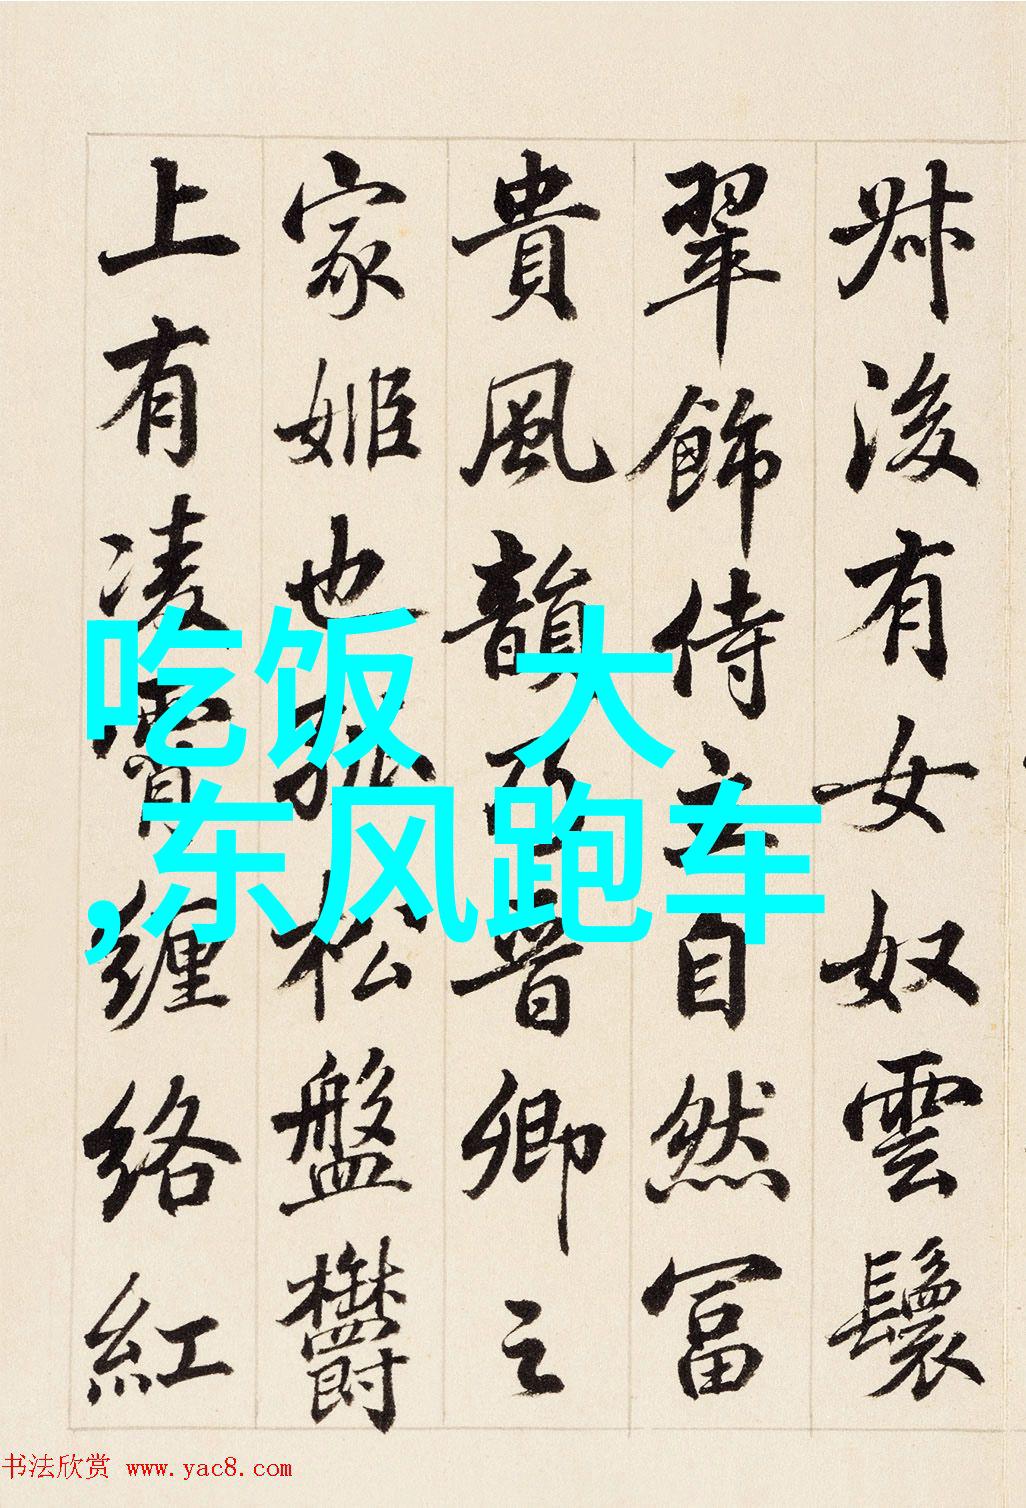 叔後有女奴雲鬟
翠飾侍立自然富
貴風韻乃晉卿之
家姬也孤松盤欝
上有凌霄纏絡紅
吃饭 大
,东风跑车
书法欣赏 www.yac8.com